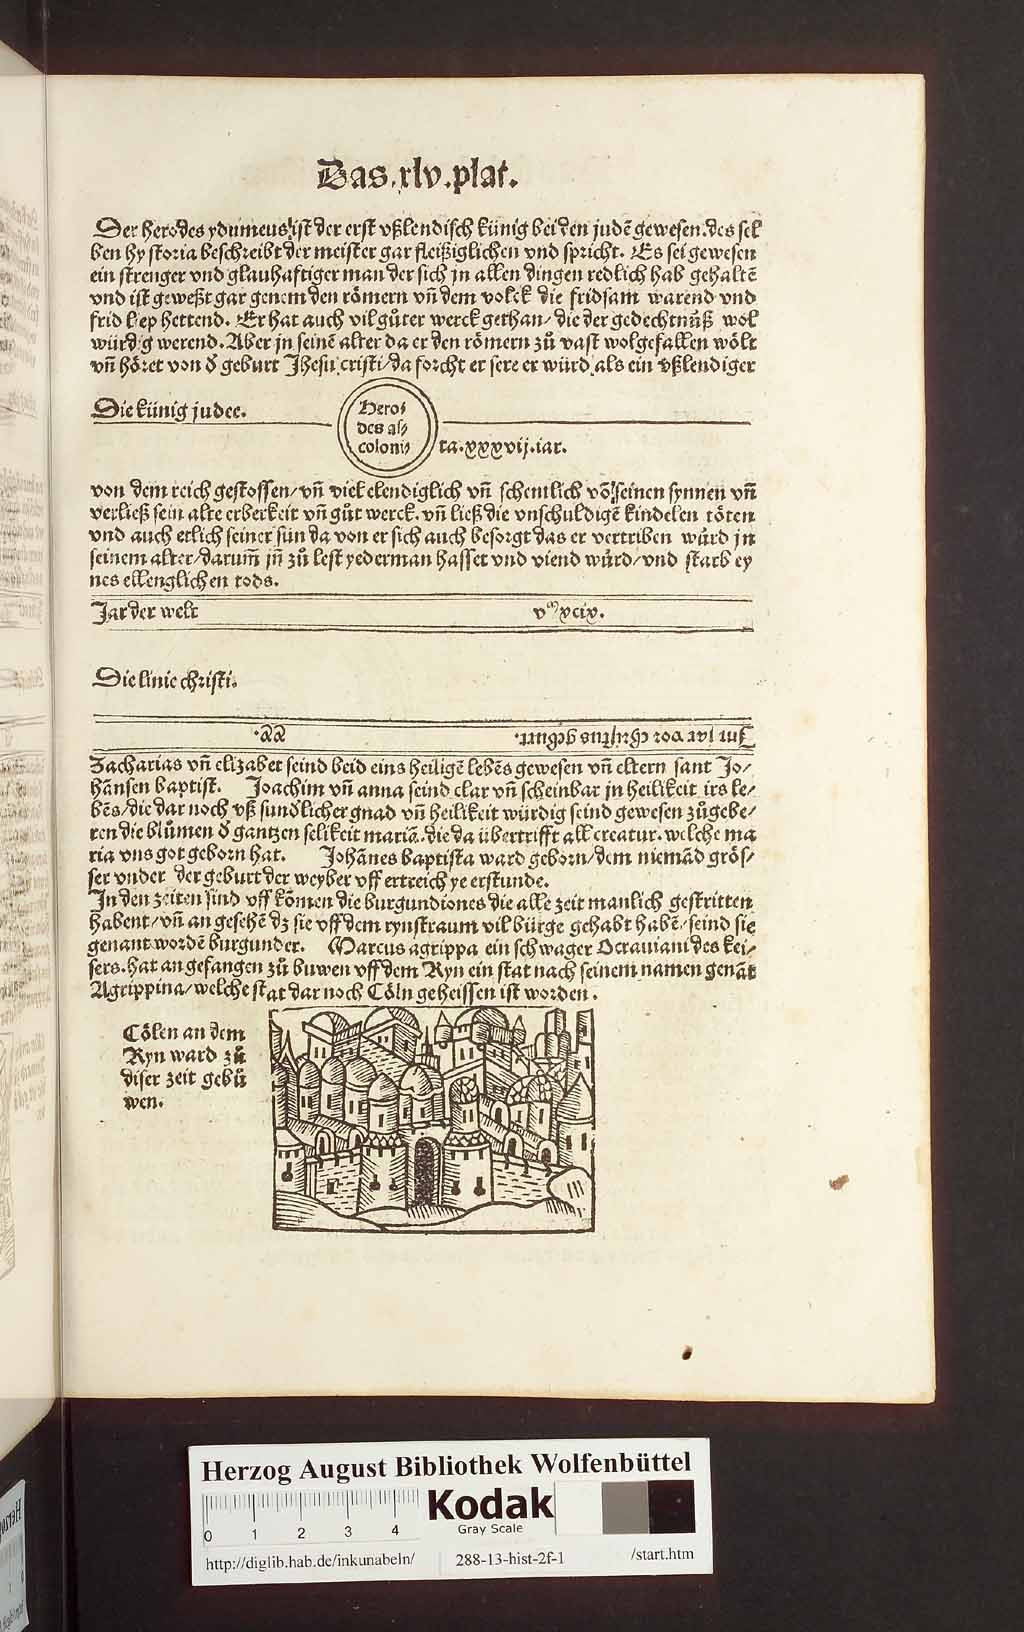 Das.xlv.plat.
Der herodes ydumeus/ist der erst vßlendisch künig bei den judē gewesen.des sel
ben hystoria beschreibt der meister gar fleißiglichen vnd spricht. Es sei gewesen
ein strenger vnd glauhaftiger man der sich jn allen dingen redlich hab gehaltē
vnd ist geweßt gar genem den römern vn̄ dem volck die fridsam warend vnd
frid liep hettend. Er hat auch vil gůter werck gethan/die der gedechtnůß wol
würdig werend. Aber jn seinē alter da er den römern zů vast wolgefallen wölt
vn̄ höret von d̄ geburt Jhesu cristi/da forcht er sere er würd als ein vßlendiger
Die künig judee.
Hero/
des as/
coloni/
ta.xxxvij.iar.
von dem reich gestossen/vn̄ viel elendiglich vn̄ schentlich vō seinen synnen vn̄
verließ sein alte erberkeit vn̄ gůt werck. vn̄ ließ die vnschuldigē kindelen töten
vnd auch etlich seiner sün da von er sich auch besorgt das er vertriben würd jn
seinem alter/darum̄ jn̄ zů lest yederman hasset vnd viend würd/vnd starb ey
nes ellenglichen tods.
Jar der welt vᵐxcix.
Die linie christi.
Im iar vor christus geburt. .aa.
Zacharias vn̄ elizabet seind beid eins heiligē lebēs gewesen vn̄ eltern sant Jo/
hānsen baptist. Joachim vn̄ anna seind clar vn̄ scheinbar jn heilikeit irs le/
bēs/die dar noch vß sundlicher gnad vn̄ heilikeit würdig seind gewesen zůgebe/
ren die blůmen d̄ gantzen selikeit mariā.die da übertrifft all creatur.welche ma
ria vns got geborn hat. Johānes baptista ward geborn/dem niemād grös/
ser vnder der geburt der weyber vff ertreich ye erstunde.
In den zeiten sind vff kōmen die burgundiones die alle zeit manlich gestritten
habent/vn̄ angesehē dz sie vff dem rynstraum vil bürge gehabt habē/seind sie
genant wordē burgunder. Marcus agrippa ein schwager Octauiani des kei/
sers.hat angefangen zů buwen vff dem Ryn ein stat nach seinem namen genāt
Agrippina/welche stat dar noch Cöln geheissen ist worden.
Cölen an dem
Ryn ward zů
diser zeit gebů
wen.
Herzog August Bibliothek Wolfenbüttel
0 1 2 3 4
Kodak
Gray Scale
http://diglib.hab.de/inkunabeln/ 288-13-hist-2f-1 /start.htm